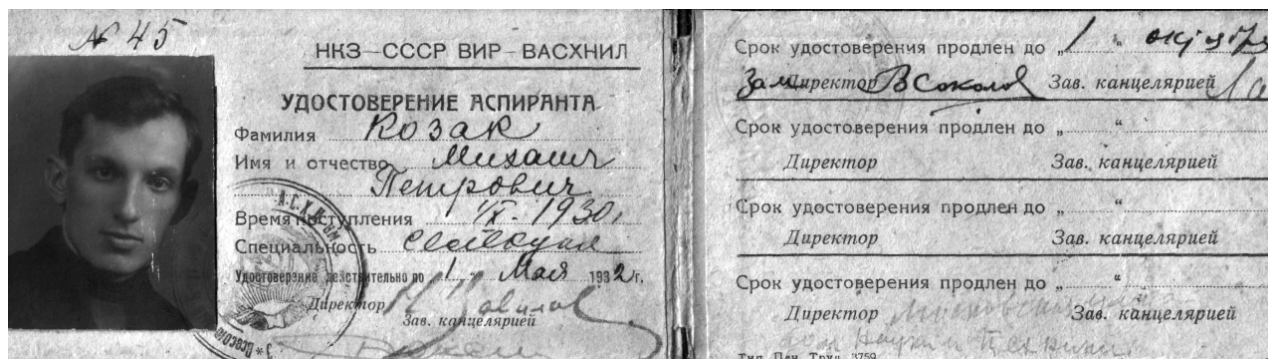 № 45
НКЗ–СССР ВИР–ВАСХНИЛ
УДОСТОВЕРЕНИЕ АСПИРАНТА
Фамилия Козак
Имя и отчество Михаил
Петрович
Время поступления 1/X-1930г.
Специальность
Удостоверение действительно по „1 " Мая 1932 г.
Директор Н Вавилов
Зав. канцелярией
Срок удостоверения продлен до „1 " октября
Зам Директор В Соколов Зав. канцелярией
Срок удостоверения продлен до „ "
Директор Зав. канцелярией
Срок удостоверения продлен до „ "
Директор Зав. канцелярией
Срок удостоверения продлен до „ "
Директор Зав. канцелярией
Тип. Печ. Труд. 3759